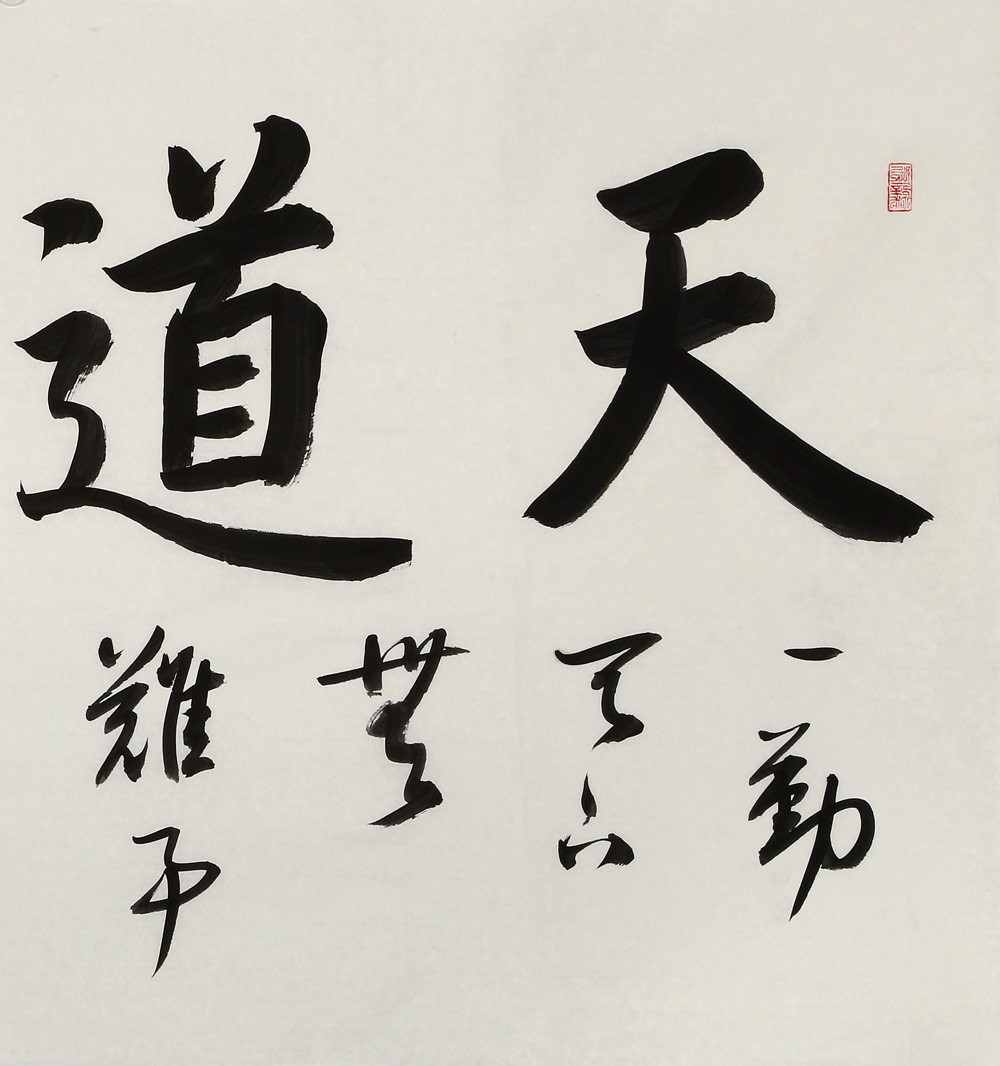 天道
一勤
天下
無
難事